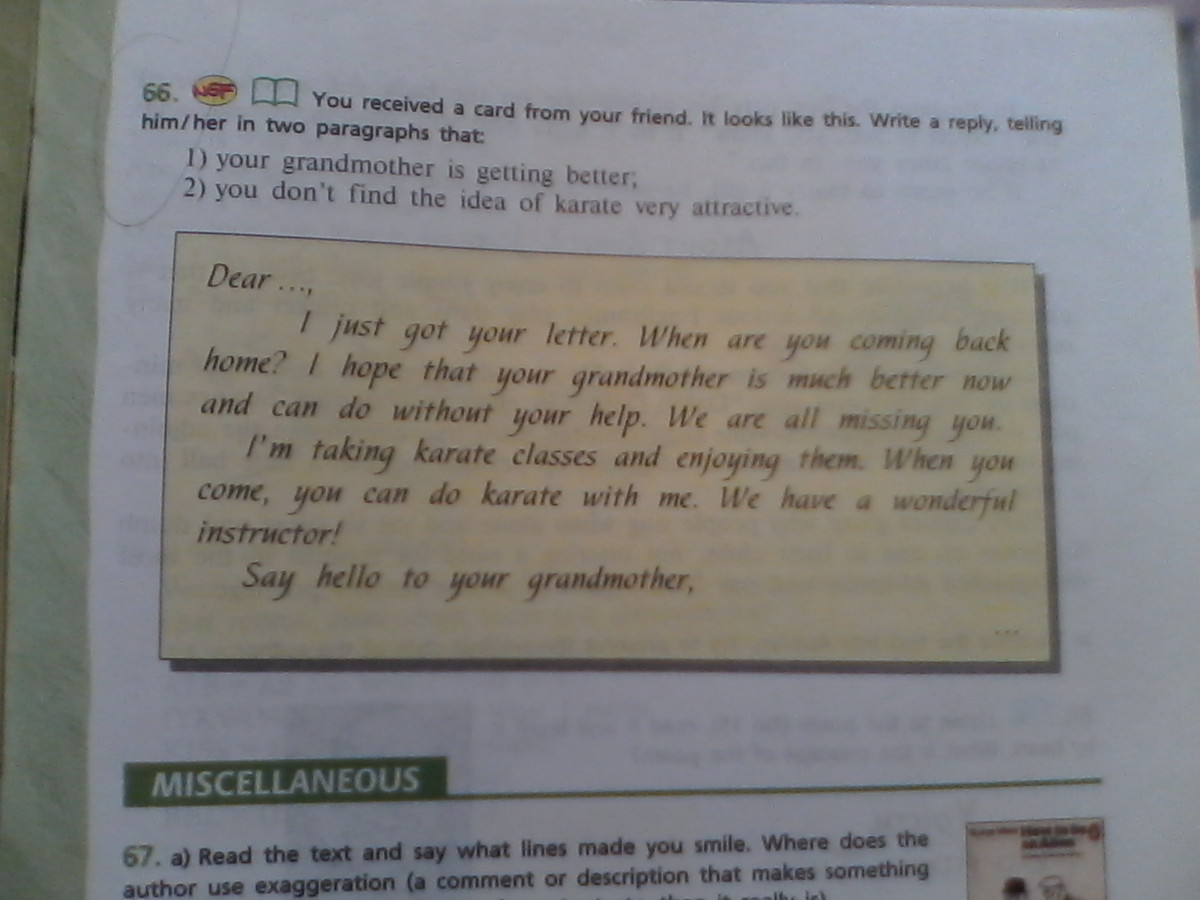 66. You received a card from your friend. It looks like this. Write a reply, telling
him/her in two paragraphs that:
1) your grandmother is getting better;
2) you don't find the idea of karate very attractive.
Dear ...,
I just got your letter. When are you coming back
home? I hope that your grandmother is much better now
and can do without your help. We are all missing you.
I'm taking karate classes and enjoying them. When you
come, you can do karate with me. We have a wonderful
instructor!
Say hello to your grandmother,
...
MISCELLANEOUS
67. a) Read the text and say what lines made you smile. Where does the
author use exaggeration (a comment or description that makes something
than it really is)